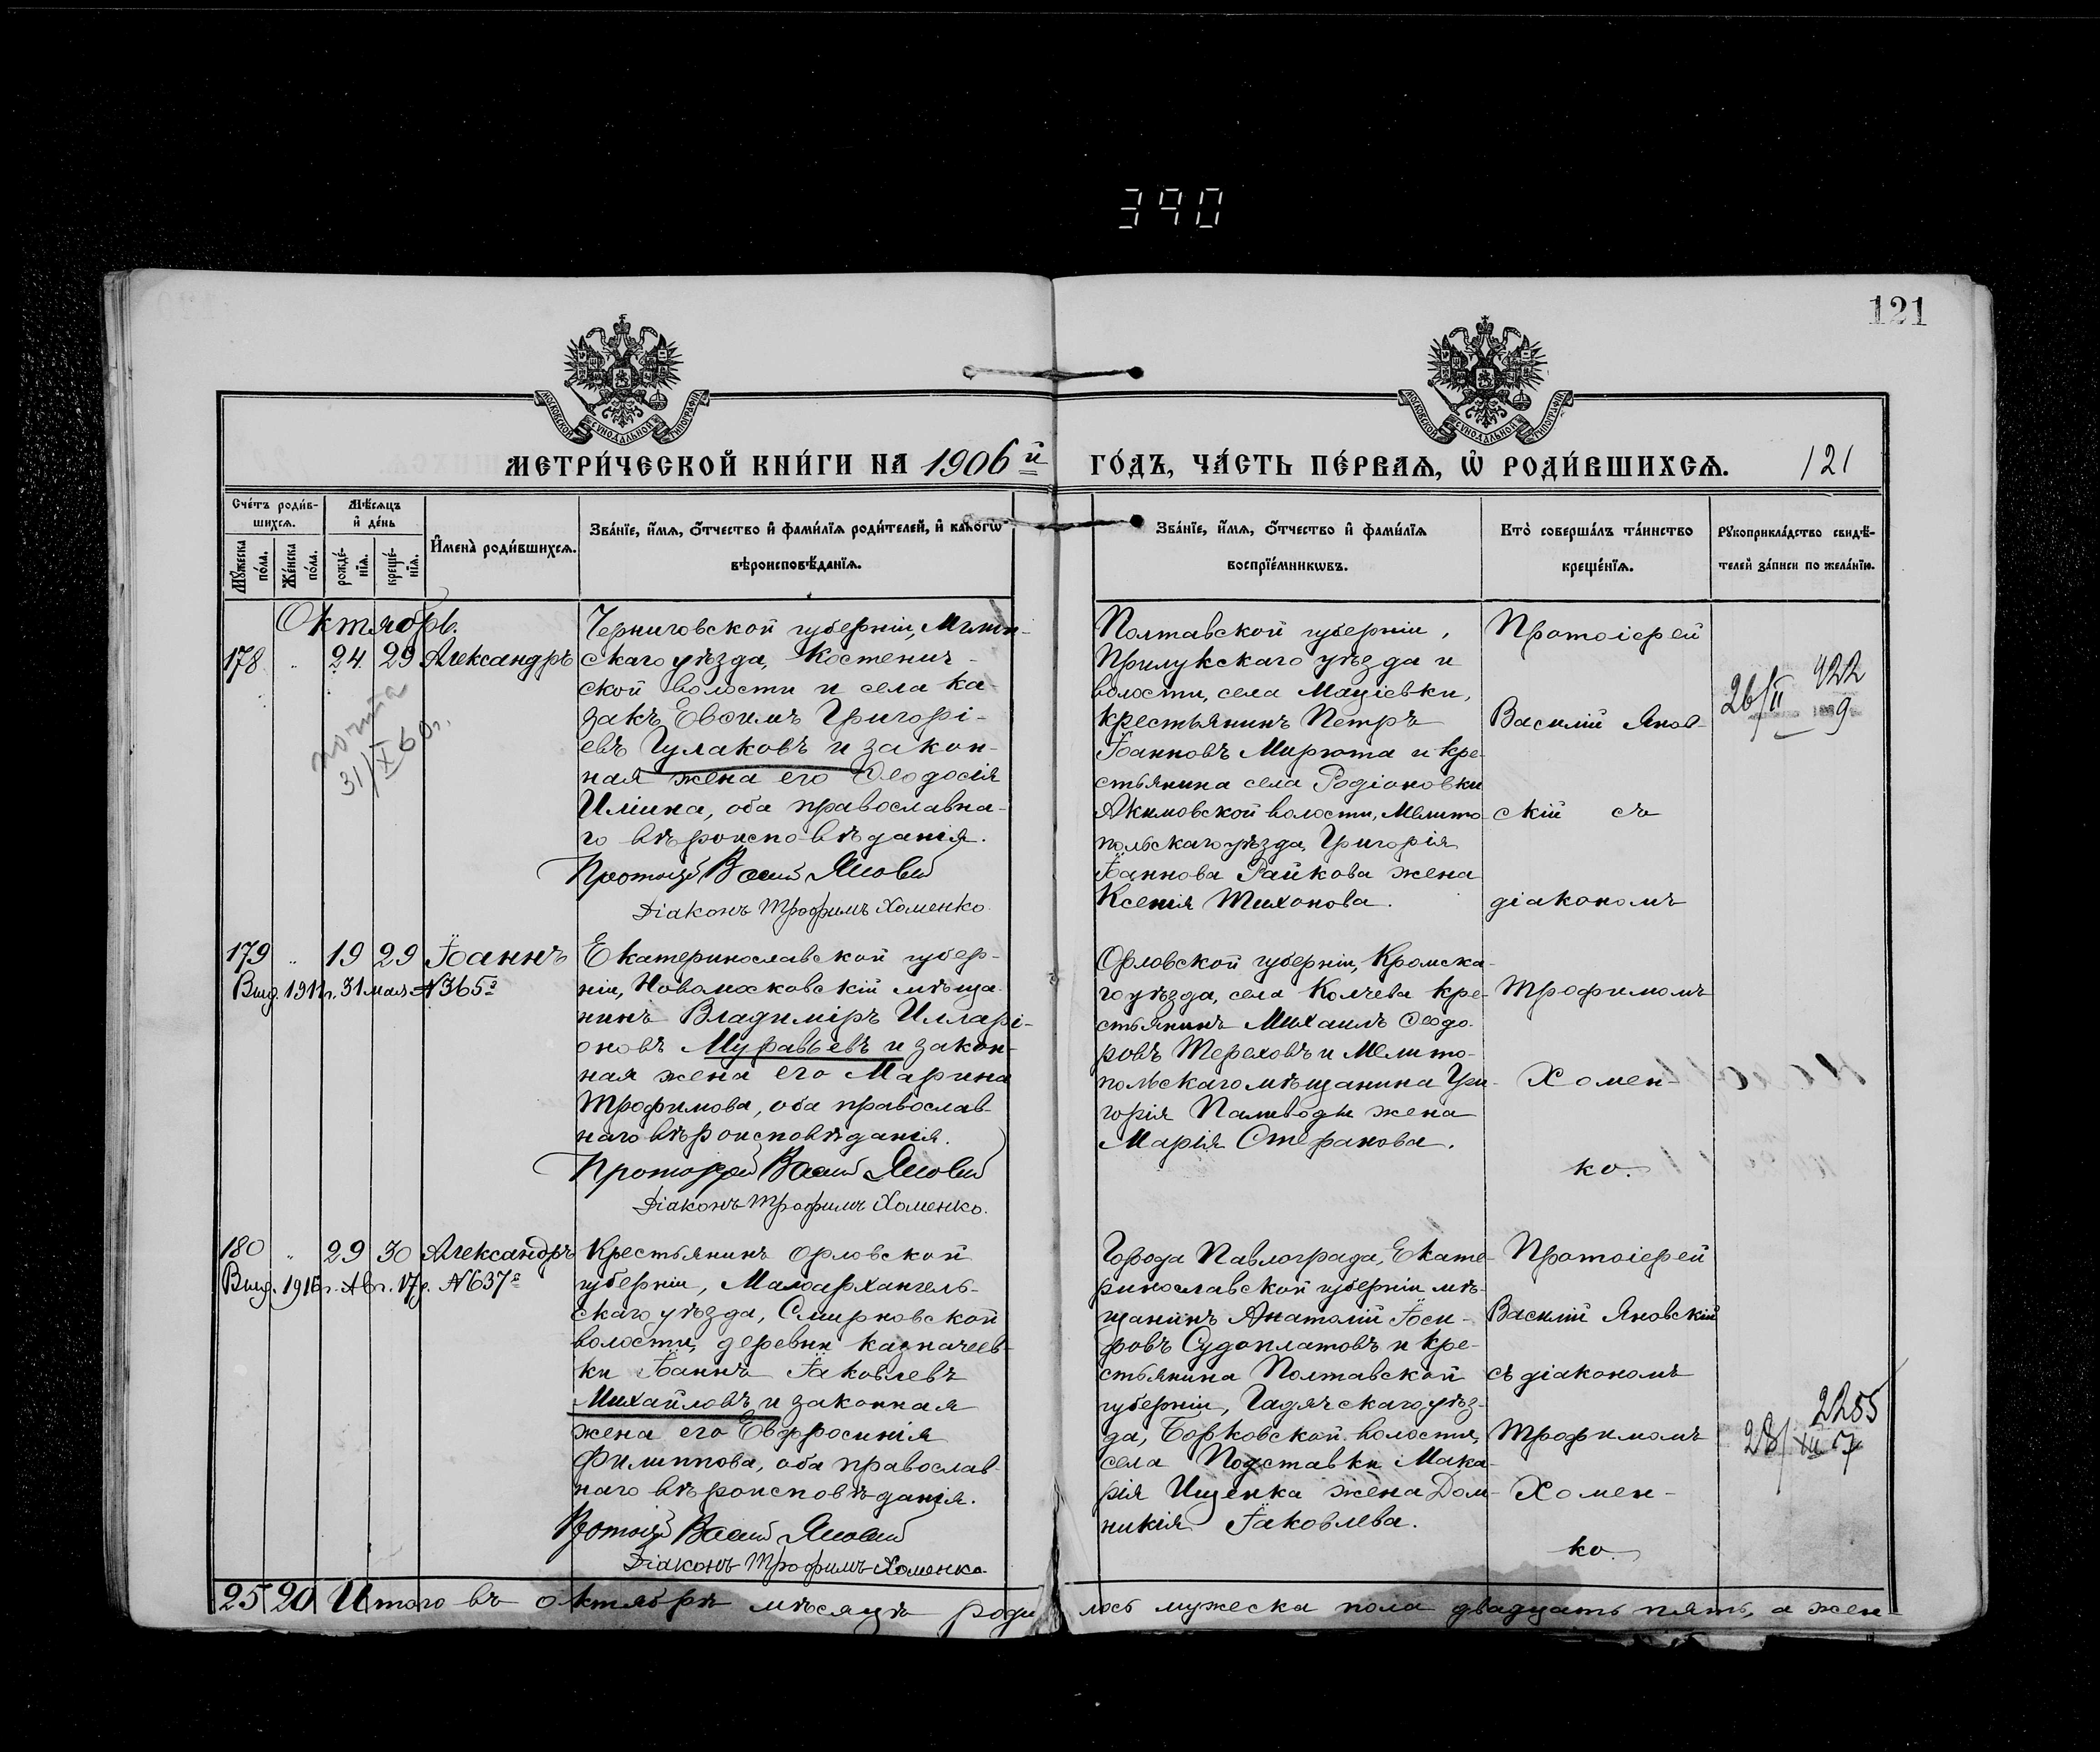 390
121
МОСКОВСКОЙ СѴНОДАЛЬНОЙ ТИПОГРАФІИ
МОСКОВСКОЙ СѴНОДАЛЬНОЙ ТИПОГРАФІИ
МЕТРИ́ЧЕСКОЙ КНИ́ГИ НА 1906й
ГО́ДЪ, ЧА́СТЬ ПЕ́РВАѦ, Ѡ҆ РОДИ́ВШИХСѦ.
121
Сче́тъ роди́в-
шихсѧ.
Мѣ́сѧцъ
и҆ де́нь
Мꙋ́жеска
по́ла.
Же́нска
по́ла.
рожде́-
нїѧ.
креще́-
нїѧ.
И҆мена̀ роди́вшихсѧ.
Зва́нїе, и҆́мѧ, ѻ҆́тчество и҆ фами́лїѧ роди́телей, и҆ какогѡ
вѣроисповѣ́данїѧ.
Зва́нїе, и҆́мѧ, ѻ҆́тчество и҆ фами́лїѧ
воспрїе́мникѡвъ.
Кто̀ соверша́лъ та́инство
креще́нїѧ.
Рꙋкоприкла́дство свидѣ́-
телей за́писи по жела́нїю.
Октябрь.
178 " 24 29 Александръ
31/X 60г.
Черниговской губерніи, Мглин-
скаго уѣзда, Костенич-
ской волости и села ка-
закъ Евѳимъ Григорі-
евъ Гулаковъ и закон-
ная жена его Ѳеодосія
Иліина, оба православна-
го вѣроисповѣданія.
Протоіерей Василій Яновскій
Діаконъ Трофимъ Хоменко.
Полтавской губерніи,
Прилукскаго уѣзда и
волости, села Мацієвки,
крестьянинъ Петръ
Іоанновъ Мирюта и кре-
стьянина села Родіоновки
Акимовской волости, Мелито-
польскаго уѣзда, Григорія
Іоаннова Райкова жена
Ксенія Тихонова.
Протоіерей
Василій Янов-
скій съ
діакономъ
Трофимомъ
Хомен-
ко.
422
26/II 9
179 " 19 29 Іоаннъ
Выд. 1911г. 31 мая №365й
Екатеринославской губер-
ніи, Новомосковскій мѣща-
нинъ Владиміръ Илларі-
оновъ Муравьевъ и закон-
ная жена его Марина
Трофимова, оба православ-
наго вѣроисповѣданія.
Протоіерей Василій Яновскій
Діаконъ Трофимъ Хоменко.
Орловской губерніи, Кромска-
го уѣзда, села Колчева кре-
стьянинъ Михаилъ Ѳеодо-
ровъ Тереховъ и Мелито-
польскаго мѣщанина Гри-
горія Паливоды жена
Марія Стефанова.
180 " 29 30 Александръ
Выд. 1916г. Авг. 17д. №637й
Крестьянинъ Орловской
губерніи, Малоархангель-
скаго уѣзда, Смирновской
волости, деревни Казначеев-
ки Іоаннъ Іаковлевъ
Михайловъ и законная
жена его Евфросинія
Филиппова, оба православ-
наго вѣроисповѣданія.
Протоіерей Василій Яновскій
Діаконъ Трофимъ Хоменко.
Города Павлограда, Екате-
ринославской губерніи мѣ-
щанинъ Анатолій Іоси-
фовъ Судоплатовъ и кре-
стьянина Полтавской
губерніи, Гадячскаго уѣз-
да, Борковской волости,
села Подставки Мака-
рія Ищенка жена Дом-
никія Іаковлева.
Протоіерей
Василій Яновскій
съ діакономъ
Трофимомъ
Хомен-
ко.
2285
28/XII 17
25 20 Итого въ октябрѣ мѣсяцѣ роди
лось мужеска пола двадцать пять, а жен